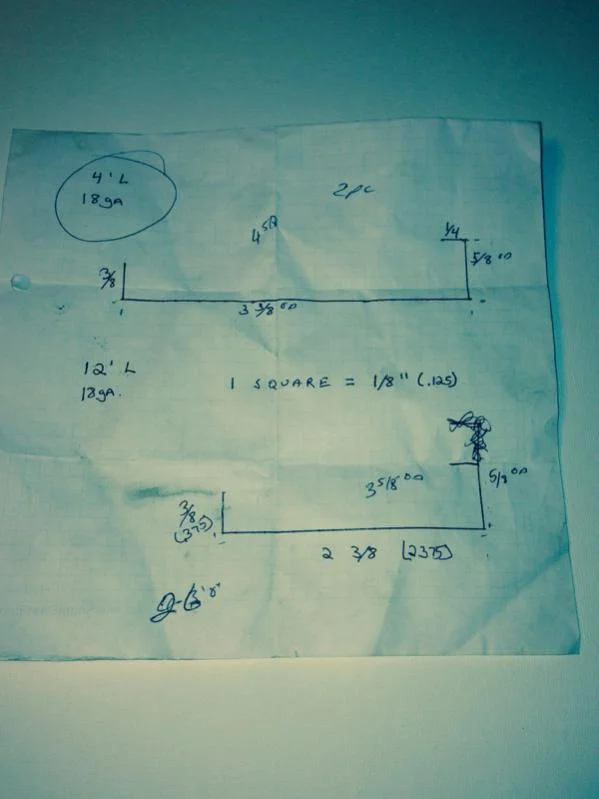 4' L
18ga
2pc
1/4
3/8
5/8 OD
3 3/8 OD
12' L
18ga.
1 SQUARE = 1/8" (.125)
3 5/8 OD
5/8 OD
3/8
(375)
2 3/8 (2375)